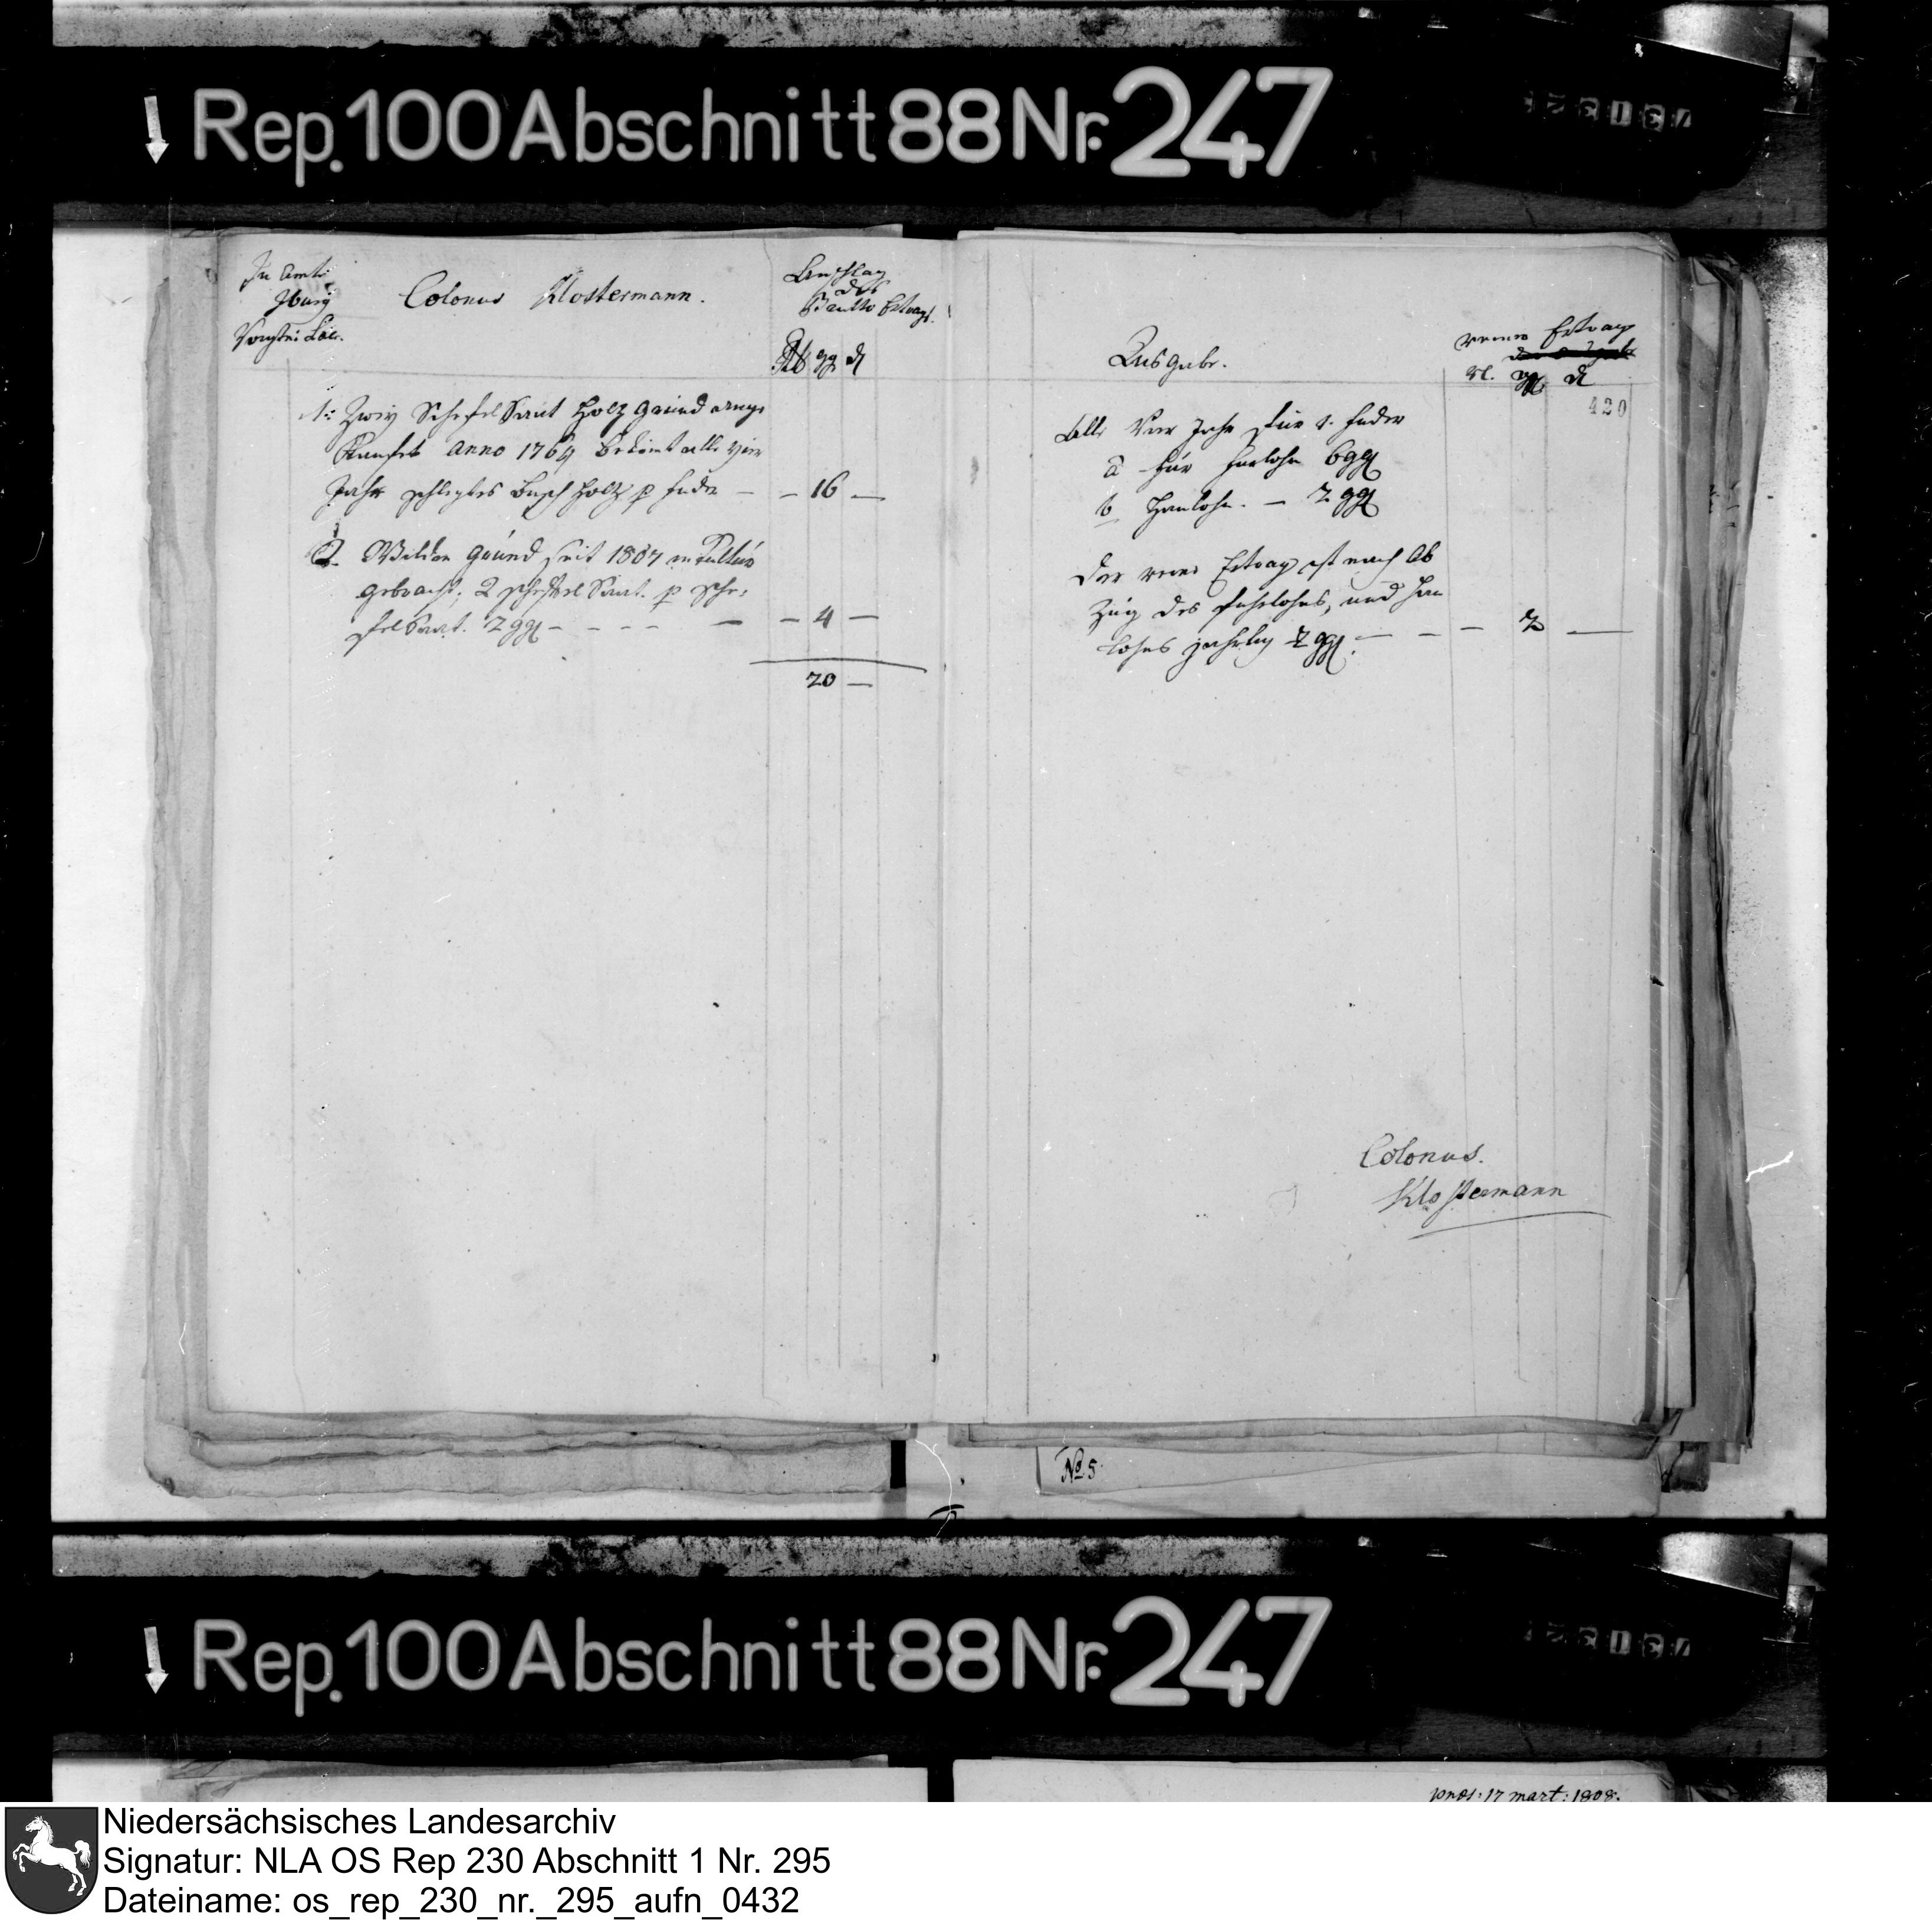 Rep. 100 Abschnitt 88 Nr. 247
Im Amte
Iburg
Vogtei Lär.
Colonus Klostermann.
Anschlag
des
Brutto Ertrags.
Rtl ggl d
1: Zwey Scheffel Saat Holz Grund ange
Kauft anno 1764 bekömt alle vier
Jahr schlechtes Busch Holz p fuder — — 16 —
2. Wilden Grund seit 1807 in Cultur
gebracht; 2 Scheffel Saat. p Sche-
ffel Saat. 2 ggl — — — — — — 4 —
20 —
Ausgabe.
reiner Ertrag
rl. ggl d
420
Alle Vier Jahr für 1. fuder
a für furlohn 6 ggl
b Haulohn. — 2 ggl
Der reine Ertrag ist nach Ab
Zug des fuhrlohns, und Hau
lohns jährlich 2 ggl. — — — 2 —
Colonus.
Klostermann
No 5.
Rep. 100 Abschnitt 88 Nr. 247
17 mart: 1808.
Niedersächsisches Landesarchiv
Signatur: NLA OS Rep 230 Abschnitt 1 Nr. 295
Dateiname: os_rep_230_nr._295_aufn_0432